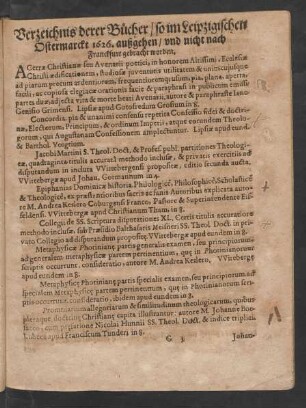 Verzeichnis derer Bücher / so im Leipzigischen
Ostermarckt 1626. außgehen / vnd nicht nach
Franckfurt gebracht worden.
ACerra Christiana seu Avenarii poetici, in honorem Altissimi, Ecclesiæ
Christi ædificationem, studiosæ juventutis utilitatem &
ad piarum precum ordinariam, frequentioremque usum, pia, plana,
facili, ac copiosa elegiacæ orationis facie & paraphrasi in publicum emissa
partes duæ, adjecta vita & morte beati Avenarii, autore & paraphraste
Genisio Girnensi. Lipsiæ apud Gotofredum Grossium in 8.
Concordia, pia & unanimi consensu repetita Confessio fidei & doctri-
næ, Electorum, Principum & ordinum Imperii, atque eorundem Theolo-
gorum, qui Augustanam Confessionem amplectuntur. Lipsiæ apud
& Barthol. Voigtium.
Jacobi Martini S. Theol. Doct. & Profes. publ. partitiones Theologi-
cæ, quadraginta titulis accurata methodo inclusæ, & privatis exercitiis ad
disputandum in inclyta VVittebergensi propositæ, editio secunda
VVittebergæ apud Johan. Gormannum in 4.
Epiphaniæ Dominicæ historia, Philologicis, Philosophicis, Scholasticis
& Theologicis, ex præstantioribus sacris ac
re M. Andrea Kesleto Coburgensi Franco, Pastore & Superintendente Eus-
feldensi. VVittebergæ apud Christianum Thaum in 8.
Collegii de SS. Scriptura disputationes XI. Certis titulis accuratiore
methodo inclusæ, sub Præsidio Balthasaris Meisneri SS. Theol. Doct. in pri-
vato Collegio ad disputandum propositæ. VVittebergæ apud eundem in
Metaphysicæ Photinianæ partis generalis examen, seu principiorum
ad generalem metaphysicæ partem pertinentium, quæ in Photinianorum
scriptis occurrunt, consideratio, autore M. Andrea Kesleto, VVitebergæ
apud eundem in 8.
Metaphysicæ Photinianæ partis specialis examen, seu principiorum ad
specialem Metaphysicæ partem pertinentium, quæ in Photinianorum
scriptis occurrunt, consideratio, ibidem apud eundem in 8.
Promtuarium allegoriarum & similitudinum theologicarum, quibus
doctrinæ Christianæ capita illustrantur: autore M. Johanne
cum præfatione Nicolai Hunnii SS. Theol. Doct. & indice tripli-
apud Franciscum Tunderi in 8.
G 3
Johan-